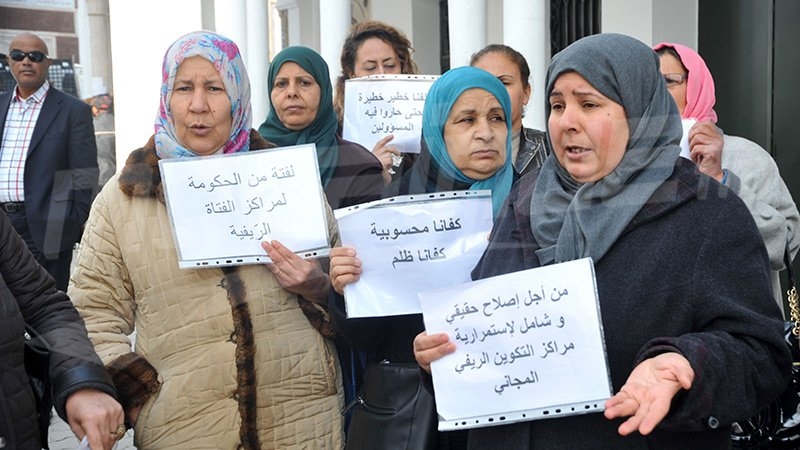 لفتة من الحكومة
لمراكز الفتاة
الريفية
ملفنا خطير خطيرة
حتى حاروا فيه
المسؤولين
كفانا محسوبية
كفانا ظلم
من أجل إصلاح حقيقي
و شامل لإستمرارية
مراكز التكوين الريفي
المجاني